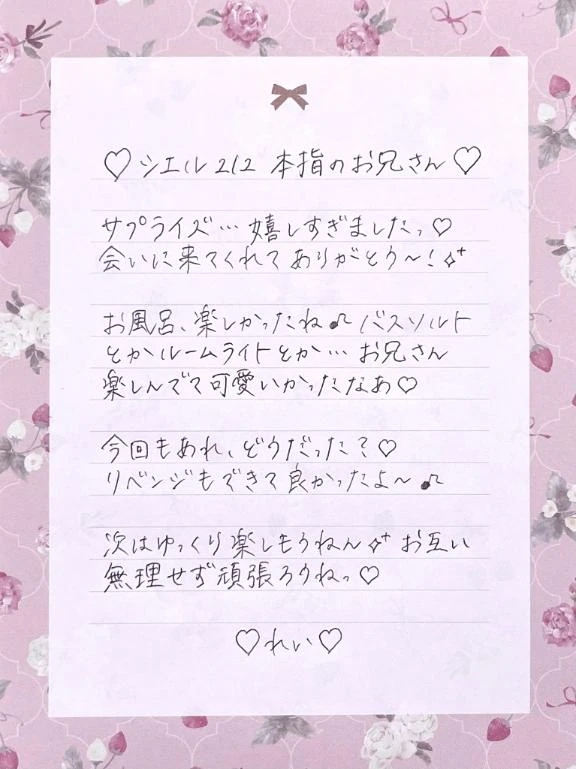 ♡シエル212 本指のお兄さん♡
サプライズ…嬉しすぎましたっ♡
会いに来てくれてありがとう〜！✨
お風呂、楽しかったね♫ バスソルト
とかルームライトとか…お兄さん
楽しんでて可愛いかったなあ♡
今回もあれ、どうだった？♡
リベンジもできて良かったよ〜♫
次はゆっくり楽しもうねん✨お互い
無理せず頑張ろうねっ♡
♡れい♡